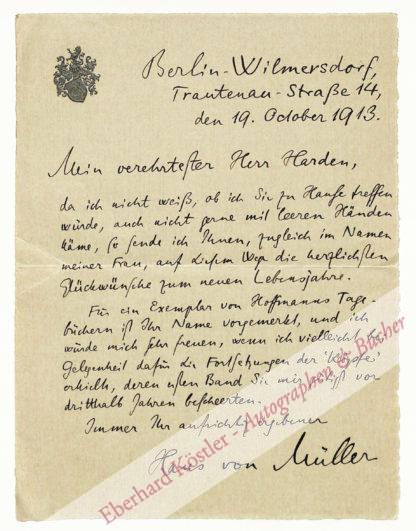 Berlin-Wilmersdorf,
Trautenau-Straße 14,
den 19. October 1913.
Mein verehrtester Herr Harden,
da ich nicht weiß, ob ich Sie zu Hause treffen
würde, auch nicht gerne mit leeren Händen
käme, so sende ich Ihnen, zugleich im Namen
meiner Frau, auf diesem Wege die herzlichsten
Glückwünsche zum neuen Lebensjahre.
Für ein Exemplar von Hoffmanns Tage-
büchern ist Ihr Name vorgemerkt, und ich
würde mich sehr freuen, wenn ich vielleicht bei
Gelegenheit dafür die Fortsetzungen der 'Köpfe'
erhielte, deren ersten Band Sie mir gütigst vor
dritthalb Jahren bescheerten.
Immer Ihr aufrichtig ergebener
Hans von Müller
Eberhard Köstler - Autographen & Bücher